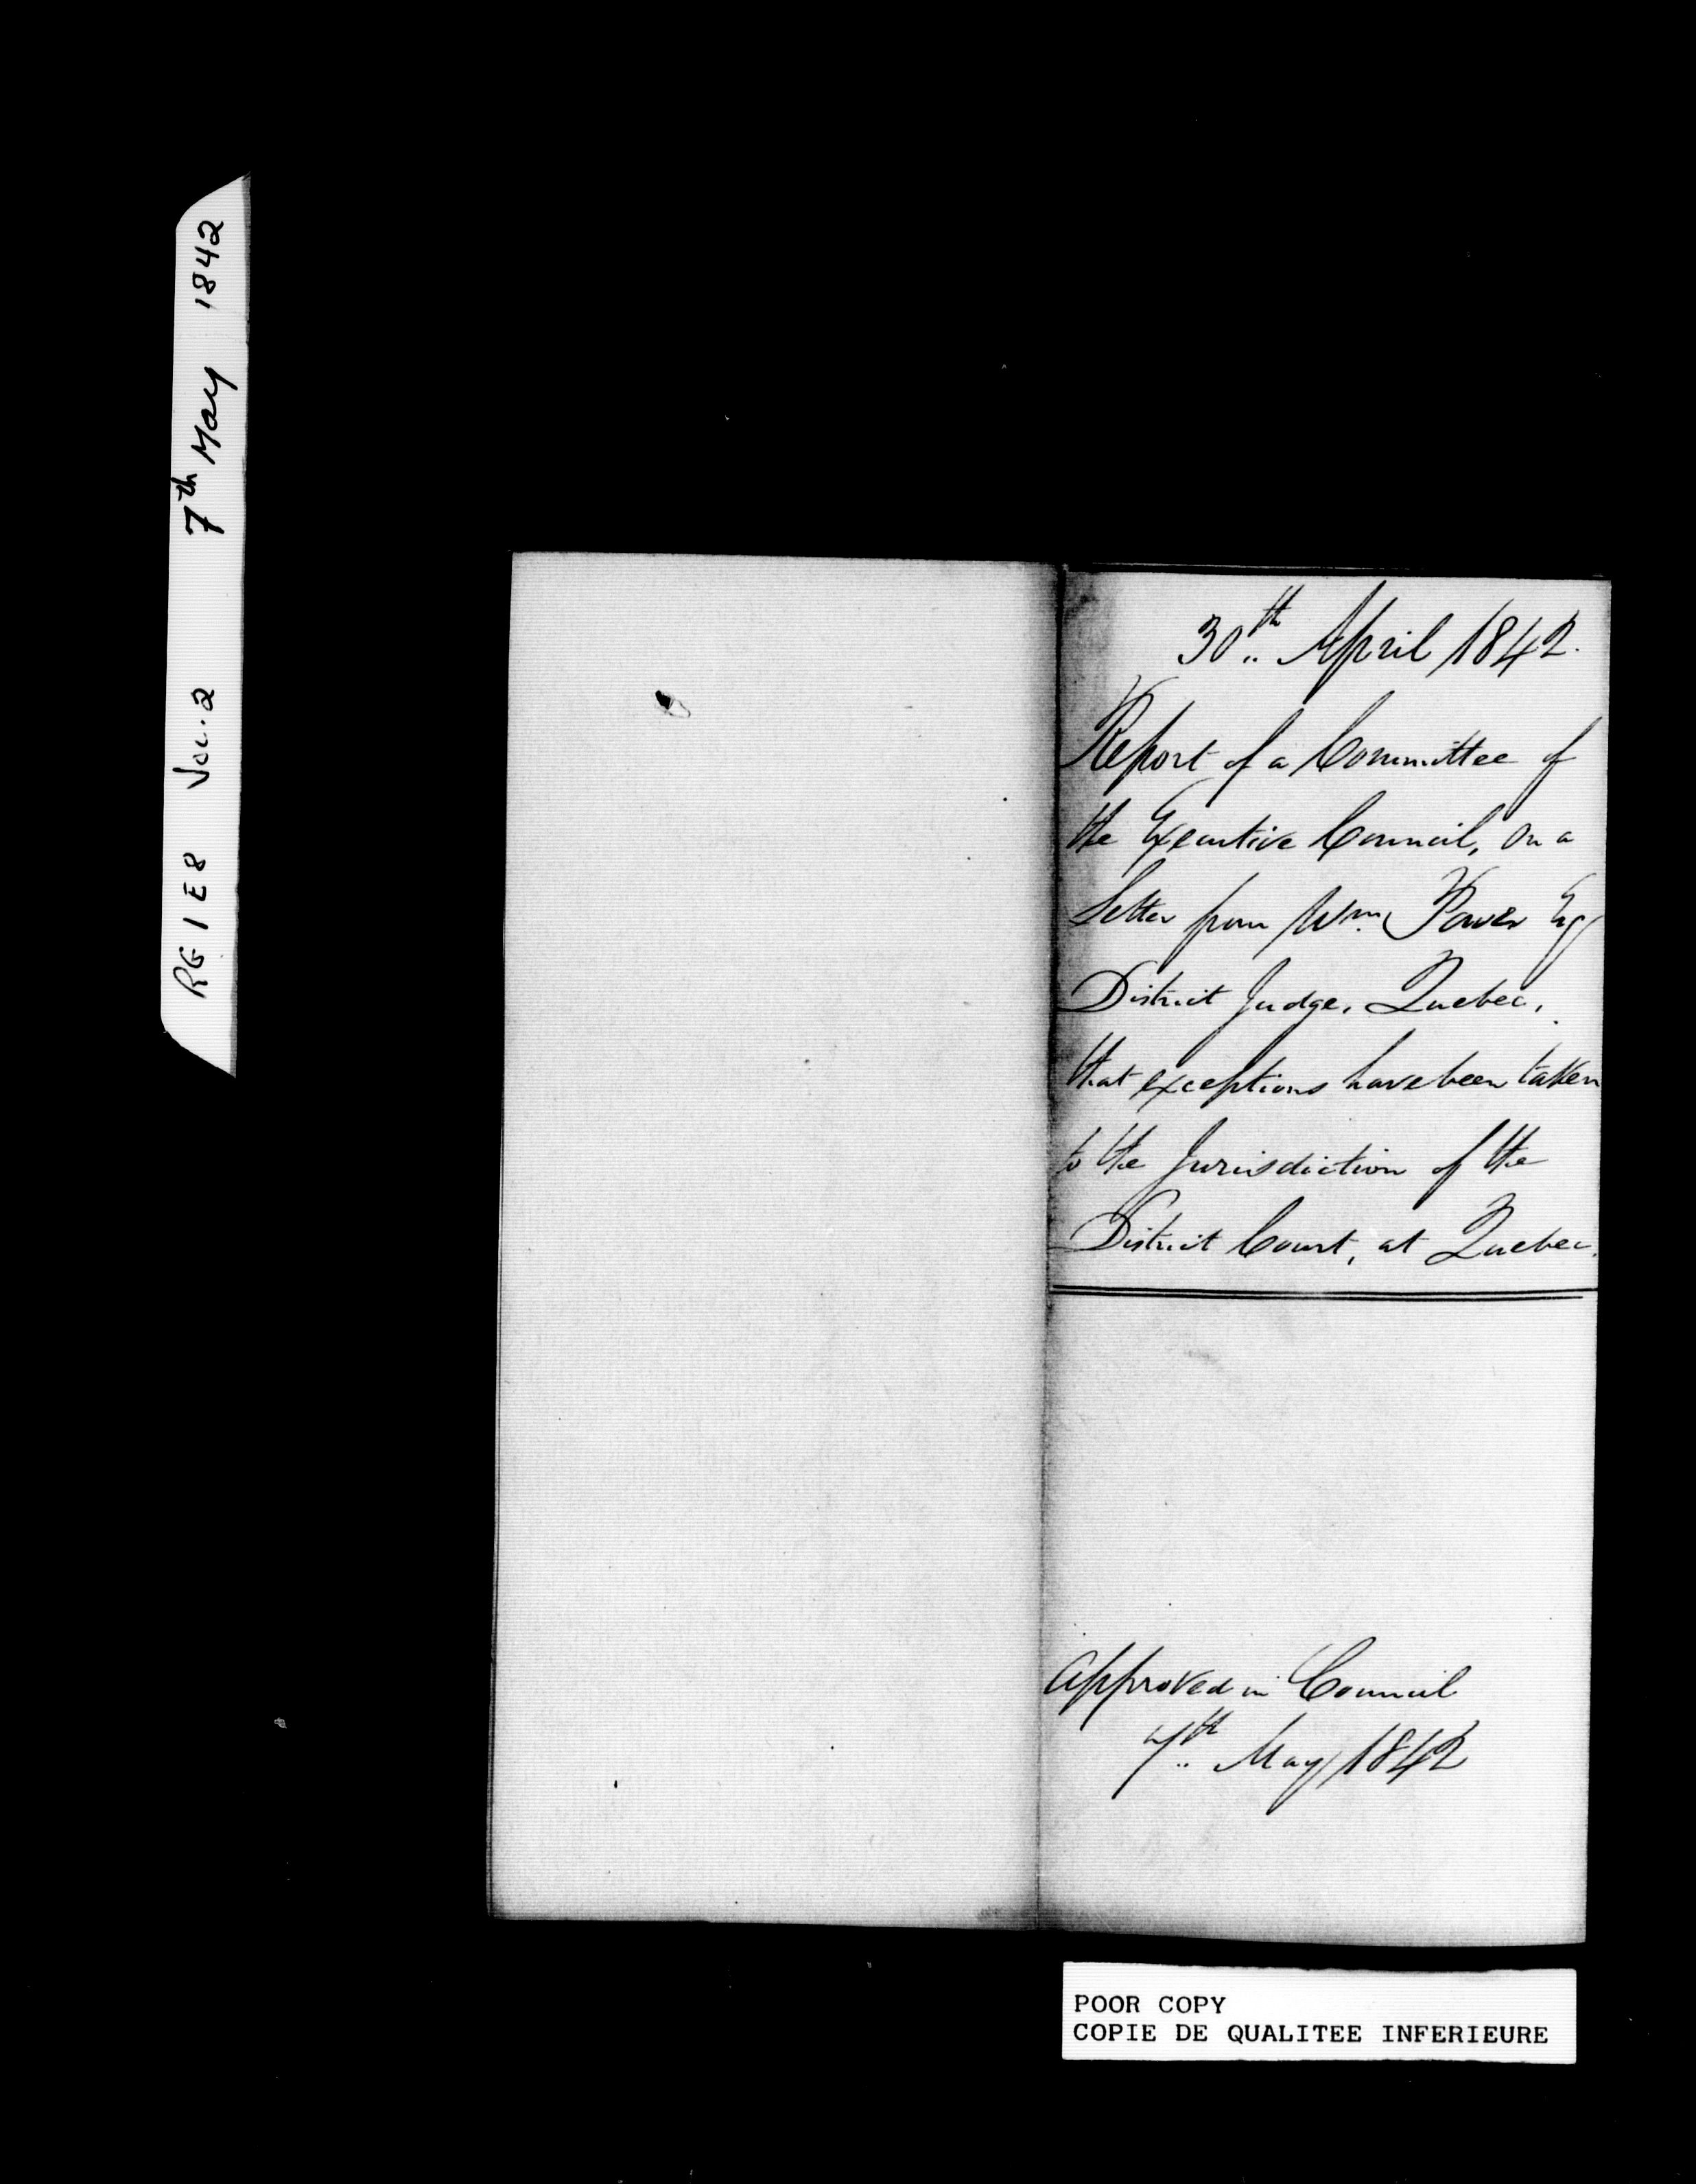 RG 1 E8 Vol. 2 7th May 1842
30th April 1842.
Report of a Committee of
the Executive Council, on a
Letter from Wm. Power Esq
District Judge, Quebec,
that exceptions have been taken
to the Jurisdiction of the
District Court, at Quebec.
Approved in Council
7th May 1842
POOR COPY
COPIE DE QUALITEE INFERIEURE